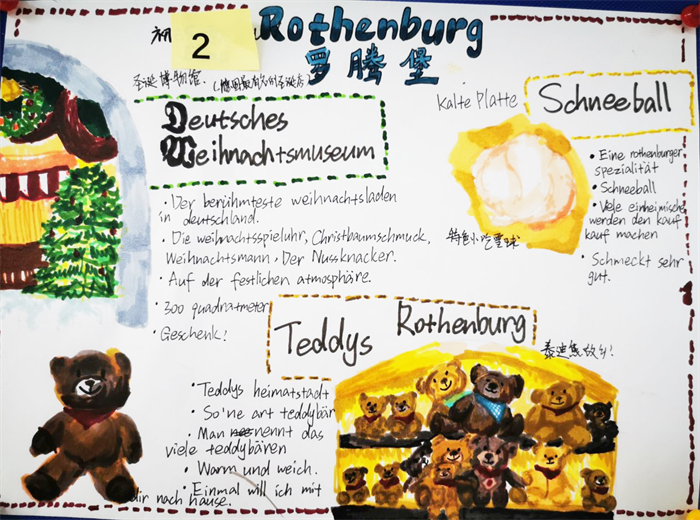 初
2
Rothenburg
罗腾堡
圣诞博物馆.
Deutsches
Weihnachtsmuseum
· Der berühmteste weihnachtsladen
in deutschland.
· Die weihnachtsspieluhr, Christbaumschmuck,
Weihnachtsmann, Der Nussknacker.
· Auf der festlichen atmosphäre.
· 300 quadratmeter
· Geschenk!
Kalte Platte
Schneeball
· Eine rothenburger
spezialität
· Schneeball
· Viele einheimische
werden den kauf
kauf machen
· Schmeckt sehr
gut.
特色小吃雪球
Teddys Rothenburg
泰迪熊故乡!
· Teddys heimatstadt
· So'ne art teddybär
· Man nennt das
viele teddybären
· Warm und weich.
· Einmal will ich mit
dir nach hause.